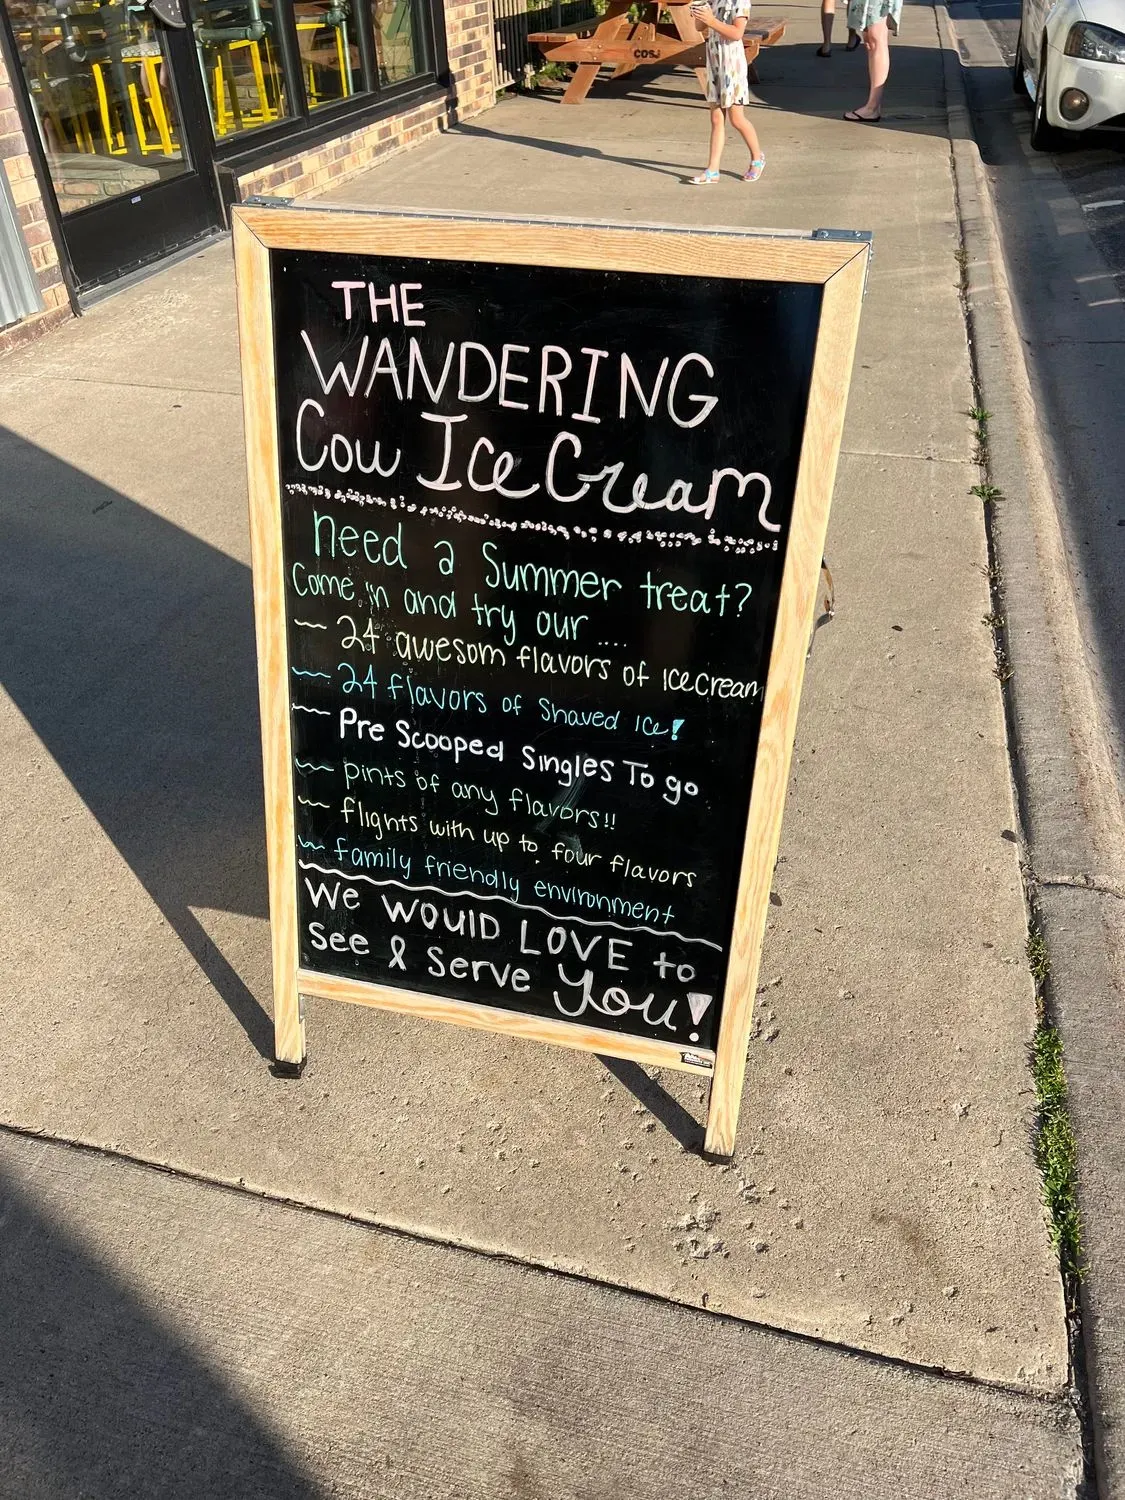 THE
WANDERING
Cow Ice Cream
need a Summer treat?
Come in and try our ....
~ 24 awesom flavors of icecream
~ 24 flavors of Shaved Ice!
~ Pre Scooped Singles To go
~ pints of any flavors!!
~ flights with up to four flavors
~ family friendly environment
We WOUlD LOVE to
See & Serve You!
COSI